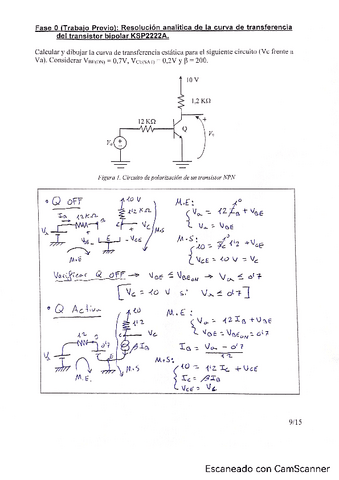 Fase 0 (Trabajo Previo): Resolución analítica de la curva de transferencia
del transistor bipolar KSP2222A.
Calcular y dibujar la curva de transferencia estática para el siguiente circuito (Vc frente a
Va). Considerar VBE(ON) = 0,7V, VCE(SAT) = 0,2V y β = 200.
10 V
1,2 KΩ
12 KΩ
Q
Va
Vc
Figura 1. Circuito de polarización de un transistor NPN
• Q OFF
10 V
M.E:
IB 12KΩ
1'2 KΩ
Va = 12 IB + VBE
0
Va = VBE
Vc
M.S
VBE
VCE
M.E
M.S:
10 = Ic 1'2 + VCE
VCE = 10 V = Vc
Verificar Q OFF → VBE ≤ VBEON → Va ≤ 0'7
[Vc = 10 V si Va ≤ 0'7]
• Q Activa
10
M.E:
12
1'2
Va = 12 IB + VBE
VBE = VBEON = 0'7
Vc
0'7
β IB
IB = Va - 0'7
12
M.E.
M.S
M.S:
10 = 1'2 Ic + VCE
Ic = β IB
VCE = Vc
9/15
Escaneado con CamScanner